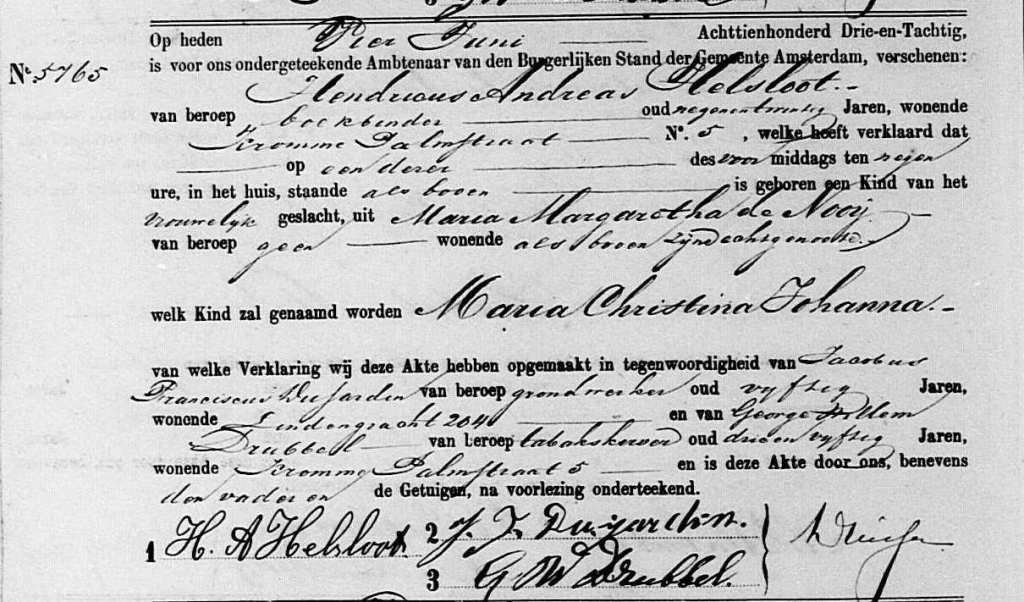 Op heden Vier Juni Achttienhonderd Drie-en-Tachtig,
No. 5765 is voor ons ondergeteekende Ambtenaar van den Burgerlijken Stand der Gemeente Amsterdam, verschenen:
Hendricus Andreas Helsloot.
van beroep boekbinder oud negenentwintig Jaren, wonende
Kromme Palmstraat No. 5, welke heeft verklaard dat
op een derer des voor middags ten negen
ure, in het huis, staande als boven is geboren een Kind van het
vrouwelyk geslacht, uit Maria Margaretha de Nooij
van beroep geen wonende als boven zijne echtgenoote.
welk Kind zal genaamd worden Maria Christina Johanna.
van welke Verklaring wij deze Akte hebben opgemaakt in tegenwoordigheid van Jacobus
Franciscus Dujardin van beroep grondwerker oud vyftig Jaren,
wonende Lindengracht 204 en van George Willem
Drubbel van beroep tabakskerver oud drieenvyftig Jaren,
wonende Kromme Palmstraat 5 en is deze Akte door ons, benevens
den vader en de Getuigen, na voorlezing onderteekend.
1 H. A Helsloot. 2 J. F. Dujardin.
3 G W Drubbel.